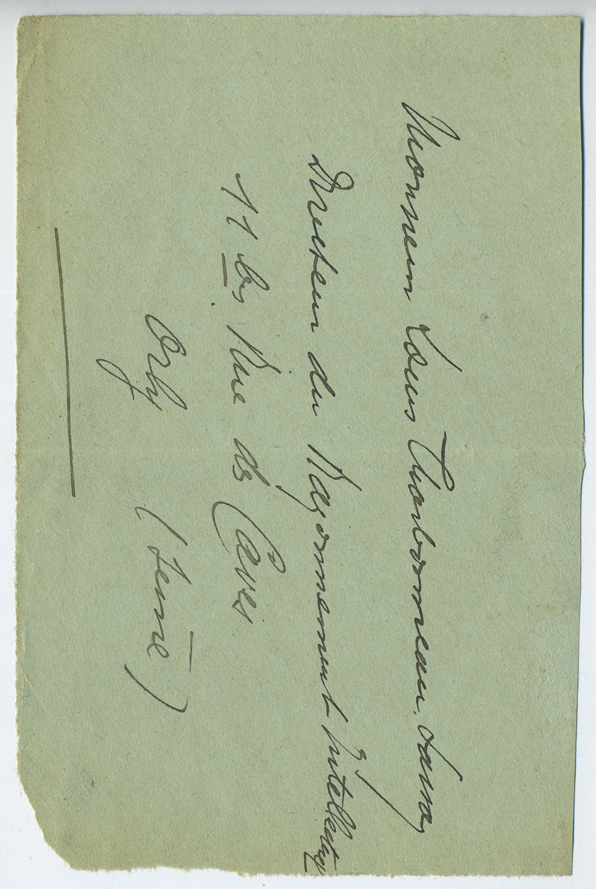 Monsieur Louis Charbonneau-Lassay
Directeur du Rayonnement Intellectuel
11 bis Rue des Caves
Orly
(Seine)